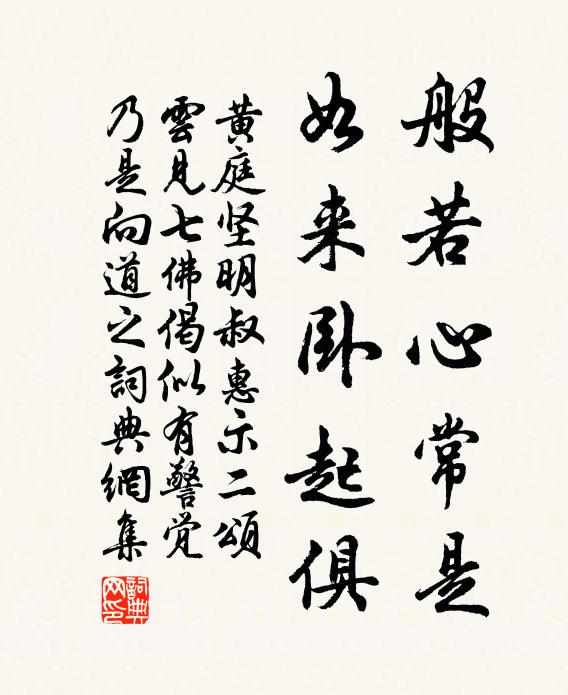 般若心常是
如来卧起俱
黄庭坚明叔惠示二頌
雲見七佛偈似有警觉
乃是向道之詞典網集
詞典網印